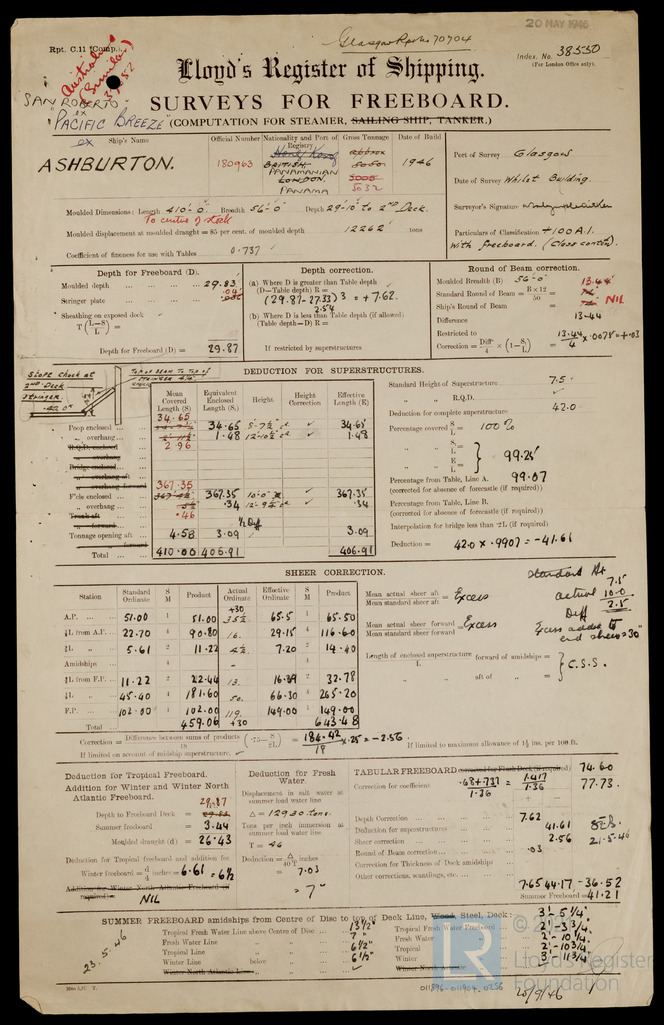 20 MAY 1946
Rpt. C.11 (Comp.)
Glasgow Rpt No 70704
Index. No. 38550
(For London Office only).
Lloyd's Register of Shipping.
SURVEYS FOR FREEBOARD.
(COMPUTATION FOR STEAMER, SAILING SHIP, TANKER.)
SAN ROBERTO
ex
"PACIFIC BREEZE"
ex
Ship's Name
ASHBURTON.
Official Number
180963
Nationality and Port of Registry
Hong Kong
BRITISH
PANAMANIAN
LONDON.
PANAMA
Gross Tonnage
approx
5050
5005
5032
Date of Build
1946
Port of Survey Glasgow
Date of Survey Whilst Building.
Surveyor's Signature
Particulars of Classification +100A.1.
With freeboard. (Class contd.)
Moulded Dimensions: Length 410'-0". Breadth 56'-0" Depth 29'-10" to 2ND Deck.
To centre of stock
Moulded displacement at moulded draught = 85 per cent. of moulded depth 12262 tons
Coefficient of fineness for use with Tables 0.737
Depth for Freeboard (D).
Moulded depth ... 29.83
Stringer plate ... .04
.036
Sheathing on exposed deck
T (L-S/L) =
Depth for Freeboard (D) = 29.87
Depth correction.
(a) Where D is greater than Table depth
(D—Table depth) R =
(29.87-27.33) 3 = +7.62.
2.54
(b) Where D is less than Table depth (if allowed)
(Table depth—D) R =
If restricted by superstructures
Round of Beam correction.
Moulded Breadth (B) 56'-0" 13.44
Standard Round of Beam = B×12/50 =
Ship's Round of Beam = NIL
Difference 13.44
Restricted to
Correction = Diff/4 × (1-S/L) = 13.44/4 × .0078 = +.03
DEDUCTION FOR SUPERSTRUCTURES.
Slope Check at
2ND Deck
Stringer
Top of Beam to Top of
Stringer
Mean Covered Length (S)
Equivalent Enclosed Length (S₁)
Height
Height Correction
Effective Length (E)
34.65
Poop enclosed ... 34.65 8'-7½" 34.65
" overhang ... 1.48 12'-10½" 1.48
2.96
R.Q.D. enclosed
" overhang
Bridge enclosed
" overhang aft
" overhang forward
367.35
F'cle enclosed ... 367.35 10'-0" 367.35
" overhang ... .34 12'-9½" .34
.46
Trunk aft
" forward
½ Diff
Tonnage opening aft ... 4.58 3.09 3.09
" forward
Total ... 410.00 406.91 406.91
Standard Height of Superstructure 7.5
" " R.Q.D.
Deduction for complete superstructure 42.0
Percentage covered S/L = 100%
" " S₁/L =
" " E/L = 99.25
Percentage from Table, Line A. 99.07
(corrected for absence of forecastle (if required))
Percentage from Table, Line B.
(corrected for absence of forecastle (if required))
Interpolation for bridge less than ·2L (if required)
Deduction = 42.0 × .9907 = -41.61
SHEER CORRECTION.
Station
Standard Ordinate
S M
Product
Actual Ordinate
Effective Ordinate
S M
Product
+30
A.P. ... 51.00 1 51.00 35½ 65.5 1 65.50
⅙L from A.P. ... 22.70 4 90.80 16. 29.15 4 116.60
⅓L " ... 5.61 2 11.22 4½ 7.20 2 14.40
Amidships ... - 4 - 4
⅓L from F.P. ... 11.22 2 22.44 13. 16.39 2 32.78
⅙L " ... 45.40 4 181.60 50. 66.30 4 265.20
F.P. ... 102.00 1 102.00 119. 149.00 1 149.00
Total ... 459.06 +30 643.48
Mean actual sheer aft / Mean standard sheer aft = Excess
Mean actual sheer forward / Mean standard sheer forward = Excess
Length of enclosed superstructure / L forward of amidships =
" aft of " =
C.S.S.
Standard Ht 7.5
actual 10.0
Diff 2.5
Excess added to
end sheers = 30"
Correction = Difference between sums of products / 18 (·75-S/2L) = 184.42/18 × .25 = -2.56
If limited on account of midship superstructure.
If limited to maximum allowance of 1½ ins. per 100 ft.
Deduction for Tropical Freeboard.
Addition for Winter and Winter North
Atlantic Freeboard.
29.87
Depth to Freeboard Deck = 29.83
Summer freeboard = 3.44
Moulded draft (d) = 26.43
Deduction for Tropical freeboard and addition for
Winter freeboard = d/4 inches = 6.61 = 6½
Addition for Winter North Atlantic Freeboard (if
required) =
NIL
Deduction for Fresh
Water.
Displacement in salt water at
summer load water line
Δ = 12930 tons.
Tons per inch immersion at
summer load water line
T = 46
Deduction = Δ/40T inches
= 7.03
= 7"
TABULAR FREEBOARD corrected for Flush Deck (if required) 74.60
Correction for coefficient .68+.737/1.36 = 1.417/1.36 77.73.
+ -
Depth Correction ... 7.62
Deduction for superstructures ... 41.61
Sheer correction ... 2.56
Round of Beam correction ... .03
Correction for Thickness of Deck amidships ...
Other corrections, scantlings, etc. ...
7.65 44.17 -36.52
Summer Freeboard = 41.21
21-5-46
SUMMER FREEBOARD amidships from Centre of Disc to top of Deck Line, Wood, Steel, Deck: 3'-5¼"
Tropical Fresh Water Line above Centre of Disc ... 13½" Tropical Fresh Water Freeboard ... 2'-3¾"
Fresh Water Line " " ... 7" Fresh Water " ... 2'-10¼"
Tropical Line " " ... 6½" Tropical " ... 2'-10¾"
Winter Line below " ... 6½" Winter " ... 3'-11¾"
Winter North Atlantic Line " " Winter North Atlantic "
23.5.46
25/9/46
011896-011904-0256
© 20
LR
Lloyd's Register
Foundation